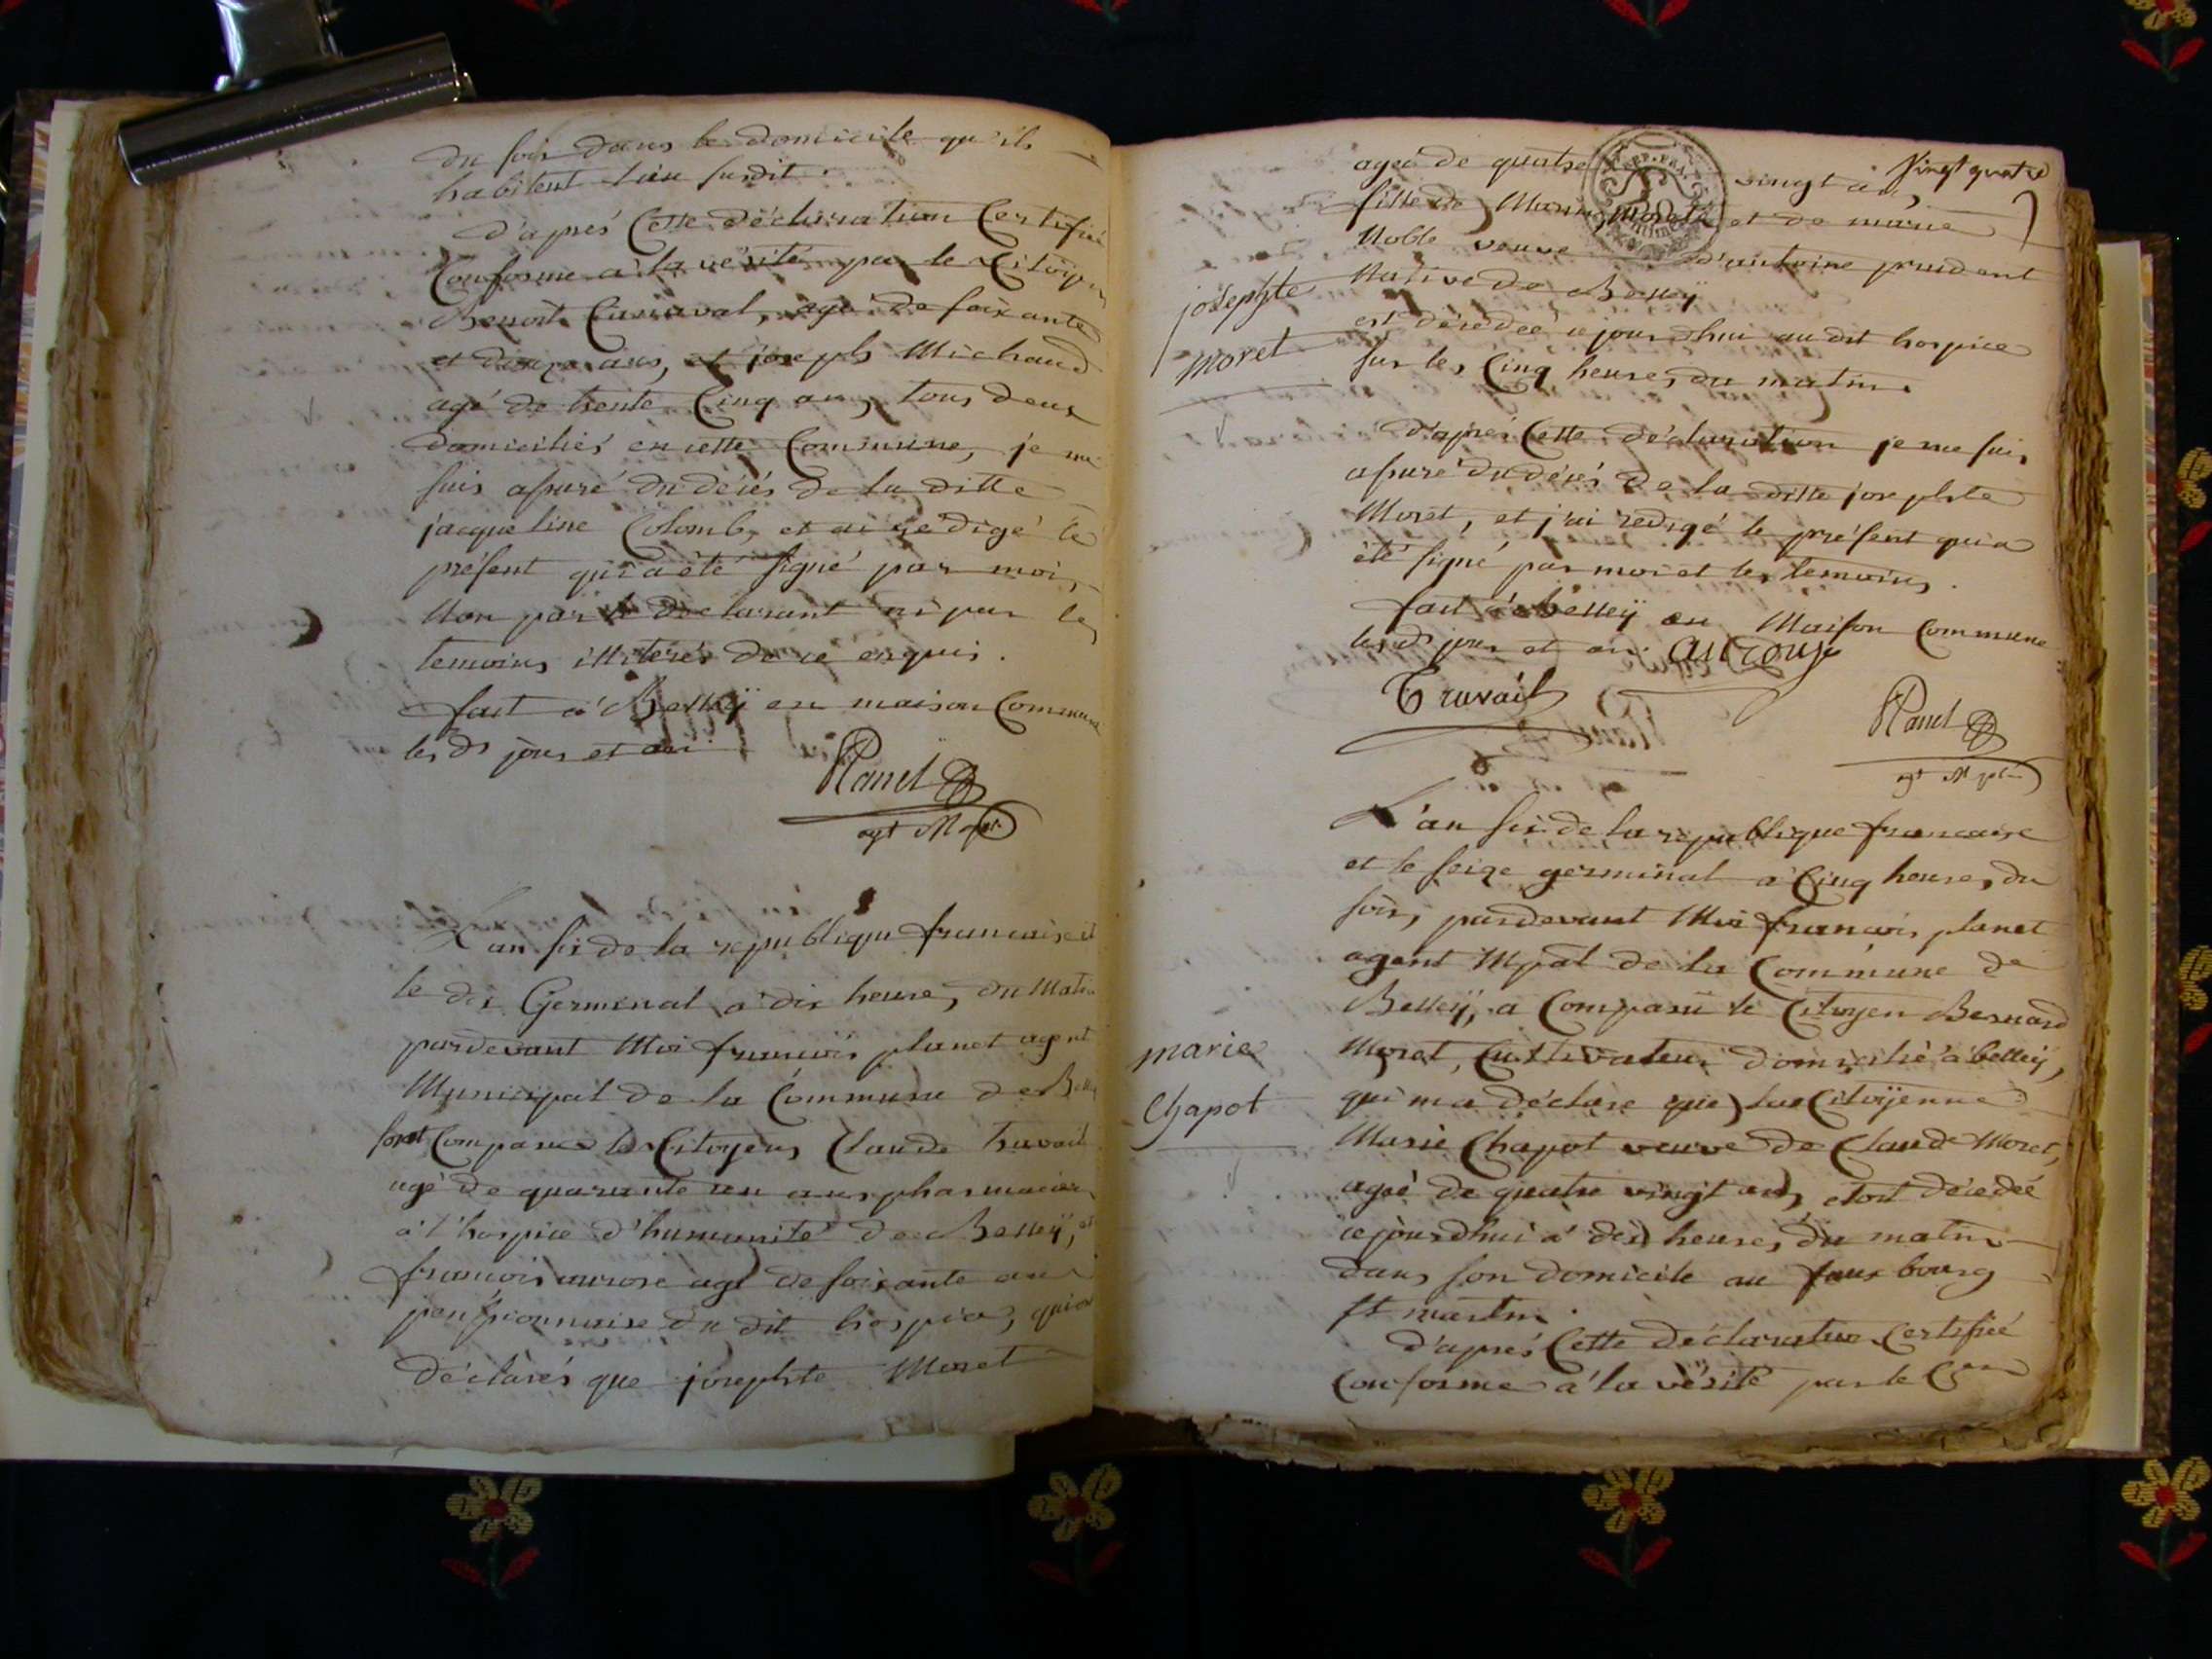 du soir dans le domicile qu'ils
habitent lieu susdit.
D'aprés Cette déclaration Certifiée
Conforme a la vérité par le Citoÿen
Benoit Carnaval, agé de soixante
et douze ans, et joseph Michaud
agé de trente Cinq ans, tous deux
domiciliés en cette Commune, je me
suis assuré du décés de la ditte
jacqueline Colomb, et ai redigé le
présent qui a été signé par moi,
Non par le declarant ni par les
temoins illiterés de ce enquis.
fait a Belleÿ en maison Commune
les ds jour et an.
Planet
agt Mpal
L'an six de la republique francaise et
le dix Germinal a dix heures du Matin
pardevant Moi francois planet agent
Municipal de la Commune de Belleÿ
sont Comparus les Citoyens Claude travail
agé de quarante un ans pharmacien
a l'hospice d'humanité de Belleÿ, et
francois aurose agé de soixante ans
penssionnaire du dit hospice, qui ont
déclarés que josephte Moret
Vingt quatre
ageé de quatre vingt ans,
fille de Moret et de marie
Noble veuve d'antoine prudent
Native de Belleÿ
josephte
Moret
est décédeé ce jourdhui au dit hospice
sur les Cinq heures du matin.
D'aprés Cette déclaration je me suis
assuré du décés de la ditte josephte
Moret, et j'ai redigé le présent qui a
été signé par moi et les temoins.
fait a belleÿ en Maison Commune
les ds jour et an.
Travail
Planet
agt Mpal
L'an six de la republique francaise
et le seize germinal a Cinq heures du
soir, pardevant Moi francois planet
agent Mpal de la Commune de
Belleÿ, a Comparu le Citoyen Bernard
marie
Chapot
Moret, Cultivateur domicilié a belleÿ,
qui m'a déclaré que la Citoÿenne
Marie Chapot veuve de Claude Moret,
ageé de quatre vingt ans, etoit décedeé
ce jourdhui a dix heures du matin
dans son domicile au faux bourg
st martin.
D'aprés Cette déclaration Certifieé
Conforme a la vérité par le Cen